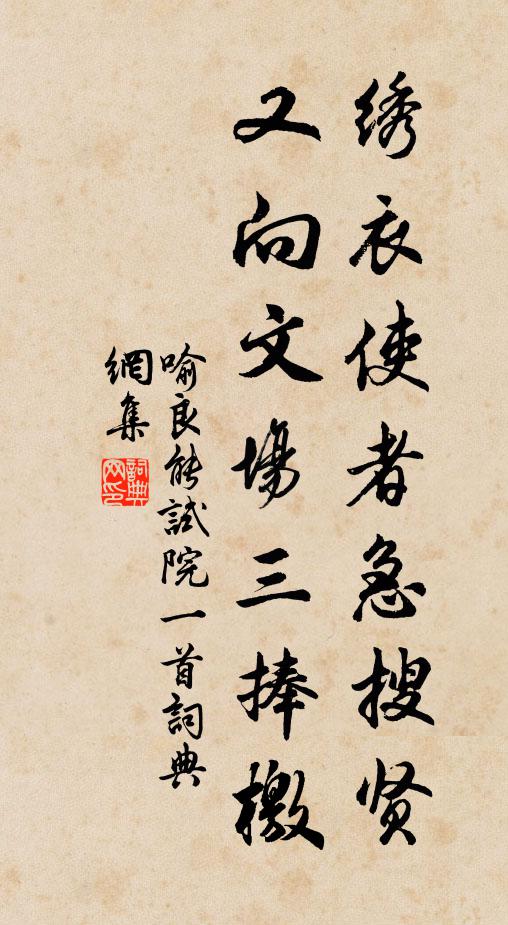 绣衣使者急搜贤
又向文場三捧檄
喻良能試院一首詞典
網集
詞典網印